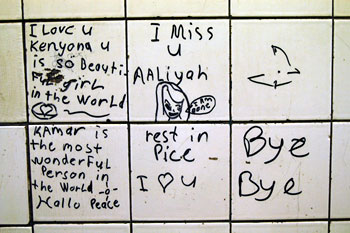 I Love u
Kenyona u
is so Beauti
Ful girl
in the World
I Miss
u
AALiyah
I Am
gone
KAmar is
the most
wonderFuL
Person in
the World
Hallo Peace
rest in
Pice
I u
Bye
Bye